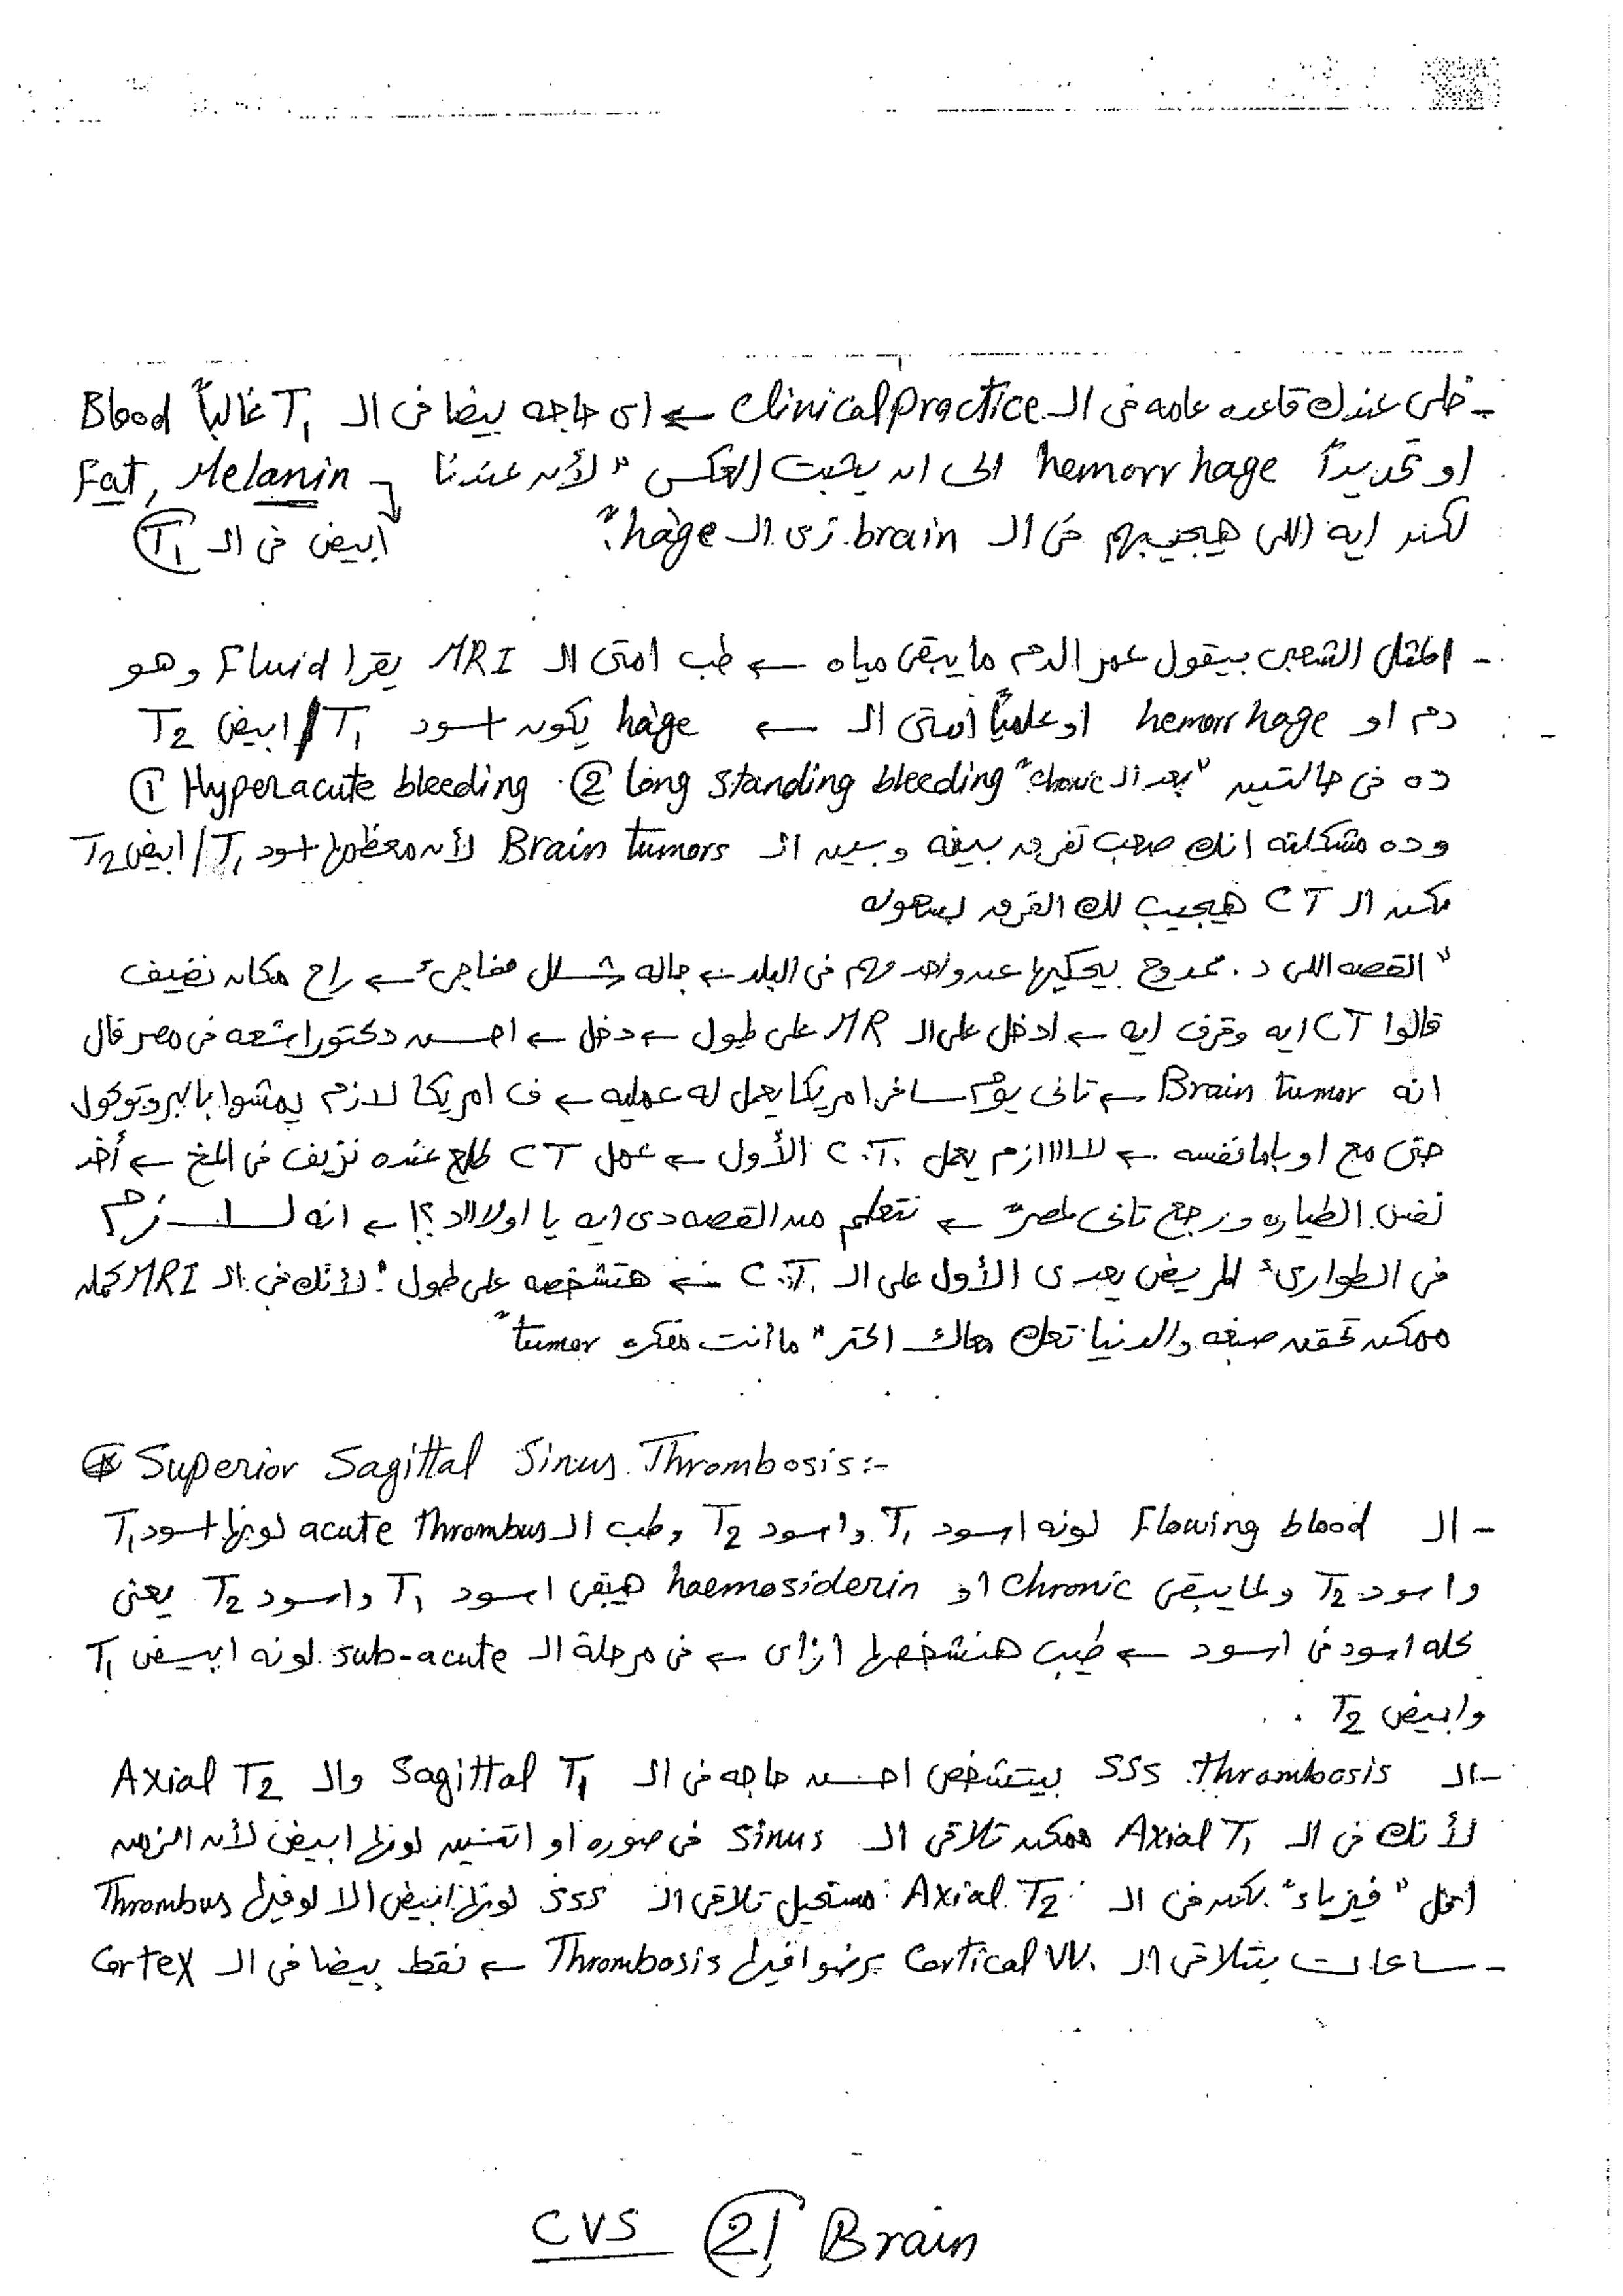 - خلى عندك قاعده عامه فى الـ Clinical practice ← اى حاجه بيضا فى الـ T1 غالباً Blood
او تحديداً hemorrhage الى ان يثبت العكس "لأن عندنا Fat, Melanin
لكن ايه اللى هيجيبهم فى الـ brain زى الـ hage" ابيض فى الـ T1
- المثل الشعبى بيقول عمر الدم ما يبقى مياه ← طب امتى الـ MRI يقرا Fluid وهو
دم او hemorrhage او علمياً امتى الـ ← hage يكون اسود T1 / ابيض T2
ده فى حالتين "بعد الـ chronic" ① Hyperacute bleeding ② Long standing bleeding
وده مشكلته انك صعب تفرق بينه وبين الـ Brain tumors لأن معظمها اسود T1 / ابيض T2
لكن الـ CT هيجيب لك الفرق بسهوله
"القصه اللى د. ممدوح بيحكيها عن واحد مهم فى البلد ← جاله شلل مفاجئ ← راح مكان نضيف
قالوا CT ايه وقرف ايه ← ادخل على الـ MR على طول ← دخل ← احسن دكتور اشعه فى مصر قال
انه Brain tumor ← تانى يوم سافر امريكا يعمل له عمليه ← ف امريكا لازم يمشوا بالبروتوكول
حتى مع اوباما نفسه ← لااااازم يعمل C.T. الأول ← عمل CT طلع عنده نزيف فى المخ ← أخد
نفس الطياره ورجع تانى مصر" ← نتعلم من القصه دى ايه يا اولاد ؟! ← انه لـــازم
فى الطوارىء المريض يعدى الأول على الـ C.T. ← هتشخصه على طول لأنك فى الـ MRI كمان
ممكن تحقن صبغه والدنيا تعك معاك اكتر "ما أنت مفكره tumor"
⊛ Superior Sagittal Sinus Thrombosis:-
- الـ Flowing blood لونه اسود T1 واسود T2 وطب الـ acute thrombus لونها اسود T1
واسود T2 ولما يبقى Chronic او haemosiderin هيبقى اسود T1 واسود T2 يعنى
كله اسود فى اسود ← طيب هنشخصها ازاى ← فى مرحلة الـ sub-acute لونه ابيض T1
وابيض T2 .
- الـ SSS thrombosis بيتشخص احسن حاجه فى الـ Sagittal T1 والـ Axial T2
لأنك فى الـ Axial T1 ممكن تلاقى الـ sinus فى صوره او اتنين لونها ابيض لأن الزمن
اقل "فيزياء" لكن فى الـ Axial T2 مستحيل تلاقى الـ SSS لونها ابيض الا لو فيها Thrombus
- ساعات بتلاقى الـ Cortical VV. برضو فيها Thrombosis ← نقط بيضا فى الـ Cortex
CVS 21 Brain